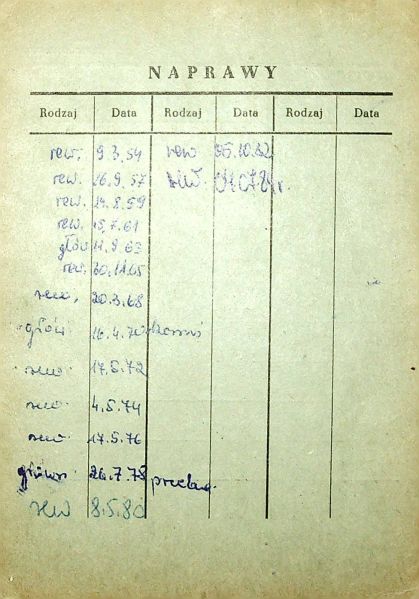 NAPRAWY
Rodzaj Data Rodzaj Data Rodzaj Data
rew. 9.3.54 rew 05.10.82
rew. 26.9.57 rew. 04.07.84 r.
rew. 24.8.59
rew. 15.7.61
głów 11.9.63
rew. 30.11.65
rew. 20.3.68
głów. 16.4.70
rew. 17.5.72
rew. 4.5.74
rew. 17.5.76
główn. 26.7.78
rew 8.5.80